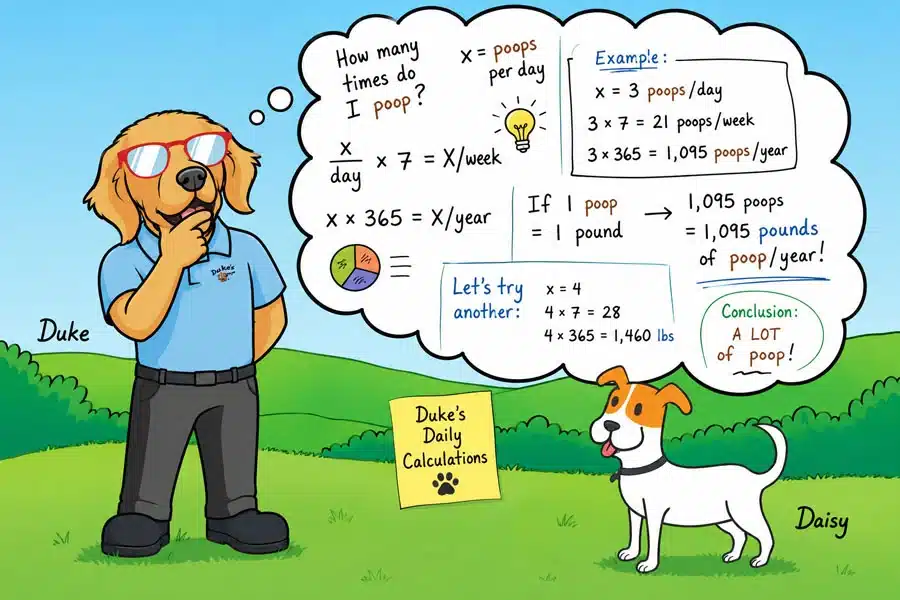 How many
times do
I poop?
x = poops
per day
x
day
× 7 = X/week
x × 365 = X/year
Example:
x = 3 poops/day
3 × 7 = 21 poops/week
3 × 365 = 1,095 poops/year
If 1 poop
= 1 pound
→
1,095 poops
= 1,095 pounds
of poop/year!
Let's try
another:
x = 4
4 × 7 = 28
4 × 365 = 1,460 lbs
Conclusion:
A LOT
of poop!
Duke's
Duke
Duke's
Daily
Calculations
Daisy